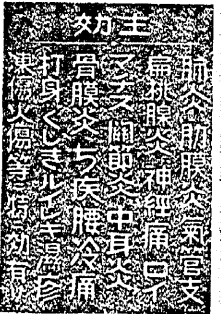 主効
肺炎肋膜炎氣管支
扁桃腺炎神經痛ロイ
マチス關節炎中耳炎
骨膜炎ぢ疾腰冷痛
打身くじきルイレキ濕疹
凍傷火傷等に特に効